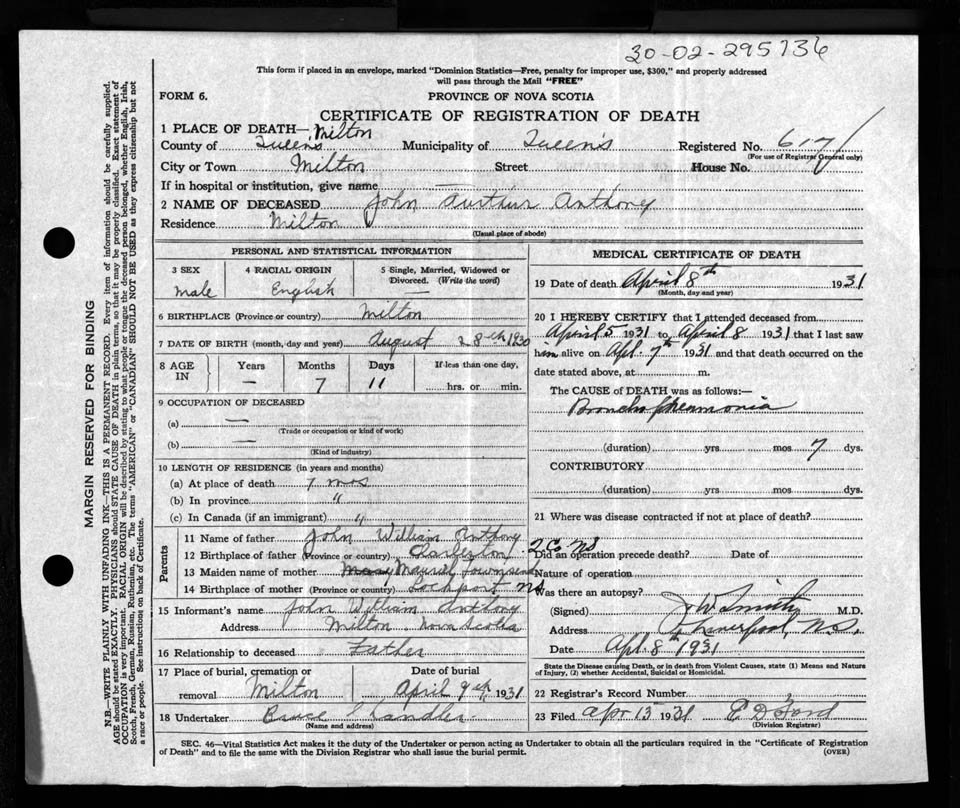 30-02-295736
This form if placed in an envelope, marked "Dominion Statistics—Free, penalty for improper use, $300," and properly addressed
will pass through the Mail "FREE"
FORM 6.
PROVINCE OF NOVA SCOTIA
CERTIFICATE OF REGISTRATION OF DEATH
1 PLACE OF DEATH— Milton
County of Queens Municipality of Queen's Registered No. 617
(For use of Registrar General only)
City or Town Milton Street House No.
If in hospital or institution, give name —
2 NAME OF DECEASED John Aurthur Anthony
Residence Milton
(Usual place of abode)
PERSONAL AND STATISTICAL INFORMATION
3 SEX 4 RACIAL ORIGIN 5 Single, Married, Widowed or
Divorced. (Write the word)
male English —
6 BIRTHPLACE (Province or country) Milton
7 DATE OF BIRTH (month, day and year) August 28th 1930
8 AGE IN Years Months Days If less than one day,
— 7 11 hrs. or min.
9 OCCUPATION OF DECEASED
(a) —
(Trade or occupation or kind of work)
(b) —
(Kind of industry)
10 LENGTH OF RESIDENCE (in years and months)
(a) At place of death 7 mos
(b) In province "
(c) In Canada (if an immigrant) "
Parents
11 Name of father John William Anthony
12 Birthplace of father (Province or country) Charleston 2 Co NS
13 Maiden name of mother Mauriel Townsend
14 Birthplace of mother (Province or country) Lockport NS
15 Informant's name John William Anthony
Address Milton Nova Scotia
16 Relationship to deceased Father
17 Place of burial, cremation or
removal Milton
Date of burial
April 9th, 1931
18 Undertaker Bruce Chandler
(Name and address)
MEDICAL CERTIFICATE OF DEATH
19 Date of death April 8th 1931
(Month, day and year)
20 I HEREBY CERTIFY that I attended deceased from
April 5 1931 to April 8 1931 that I last saw
him alive on Apl. 7th 1931 and that death occurred on the
date stated above, at m.
The CAUSE of DEATH was as follows:—
Broncho pneumonia
(duration) yrs mos 7 dys.
CONTRIBUTORY
(duration) yrs mos dys.
21 Where was disease contracted if not at place of death?
Did an operation precede death? Date of
Nature of operation
Was there an autopsy?
(Signed) J W Smith M.D.
Address Liverpool, N.S.
Date Apl. 8th 1931
State the Disease causing Death, or in death from Violent Causes, state (1) Means and Nature
of Injury, (2) whether Accidental, Suicidal or Homicidal.
22 Registrar's Record Number
23 Filed Apr 15 1931 E D Ford
(Division Registrar)
SEC. 46—Vital Statistics Act makes it the duty of the Undertaker or person acting as Undertaker to obtain all the particulars required in the "Certificate of Registration
of Death" and to file the same with the Division Registrar who shall issue the burial permit.
(OVER)
MARGIN RESERVED FOR BINDING
N.B.—WRITE PLAINLY WITH UNFADING INK—THIS IS A PERMANENT RECORD. Every item of information should be carefully supplied.
AGE should be stated EXACTLY. PHYSICIANS should STATE CAUSE OF DEATH in plain terms, so that it may be properly classified. Exact statement of
OCCUPATION is very important. RACIAL ORIGIN will be described by stating to what people or tongue the deceased person belonged, whether English, Irish,
Scotch, French, German, Russian, Ruthenian, etc. The terms "AMERICAN" or "CANADIAN" SHOULD NOT BE USED as they express citizenship but not
a race or people. See instructions on back of Certificate.